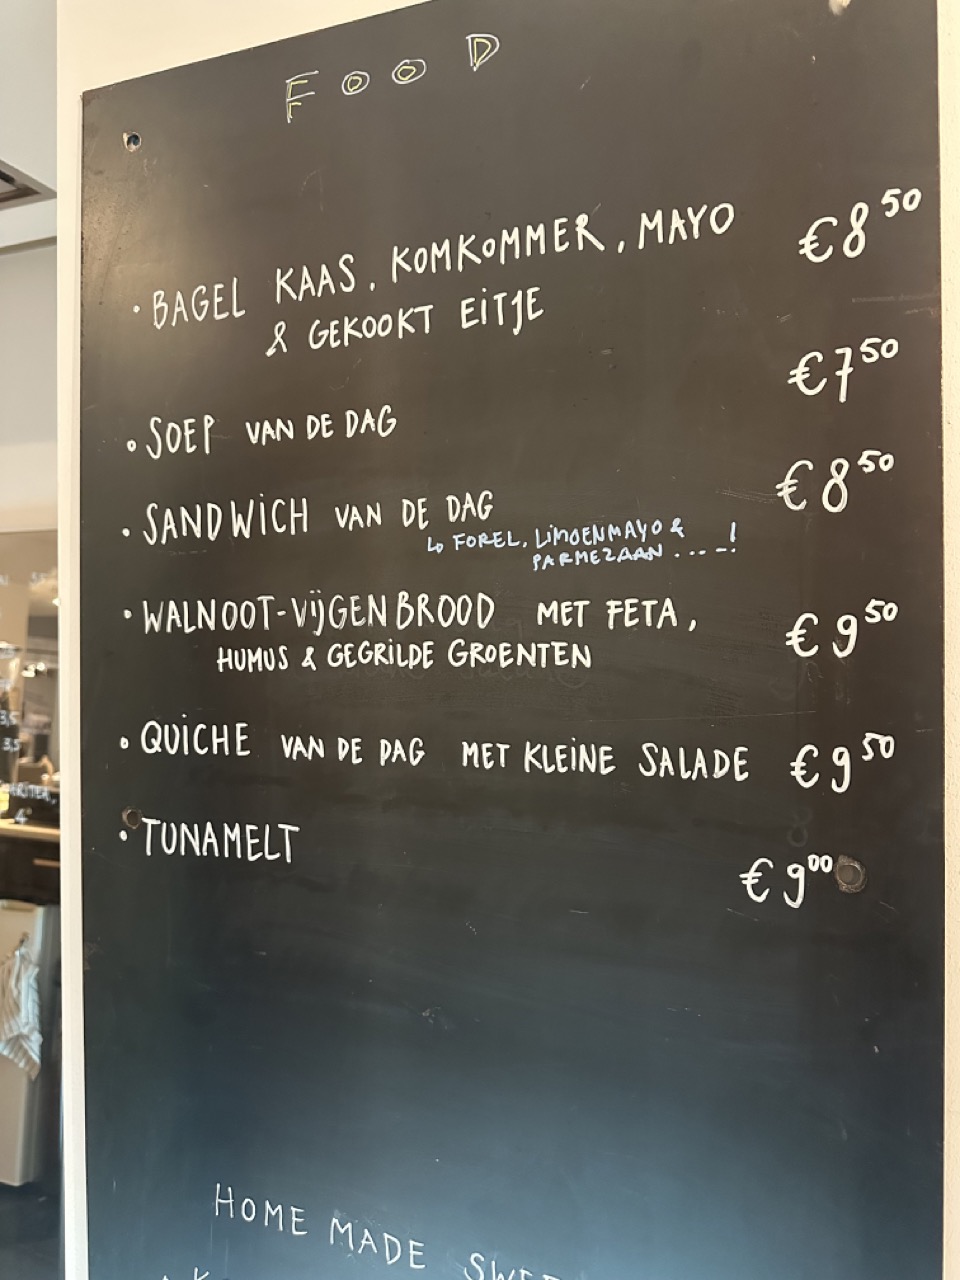 FOOD
• BAGEL KAAS, KOMKOMMER, MAYO €8 50
& GEKOOKT EITJE
• SOEP VAN DE DAG €7 50
• SANDWICH VAN DE DAG €8 50
↳ FOREL, LIMOENMAYO &
PARMEZAAN ....!
• WALNOOT-VIJGENBROOD MET FETA, €9 50
HUMUS & GEGRILDE GROENTEN
• QUICHE VAN DE DAG MET KLEINE SALADE €9 50
• TUNAMELT €9 00
HOME MADE